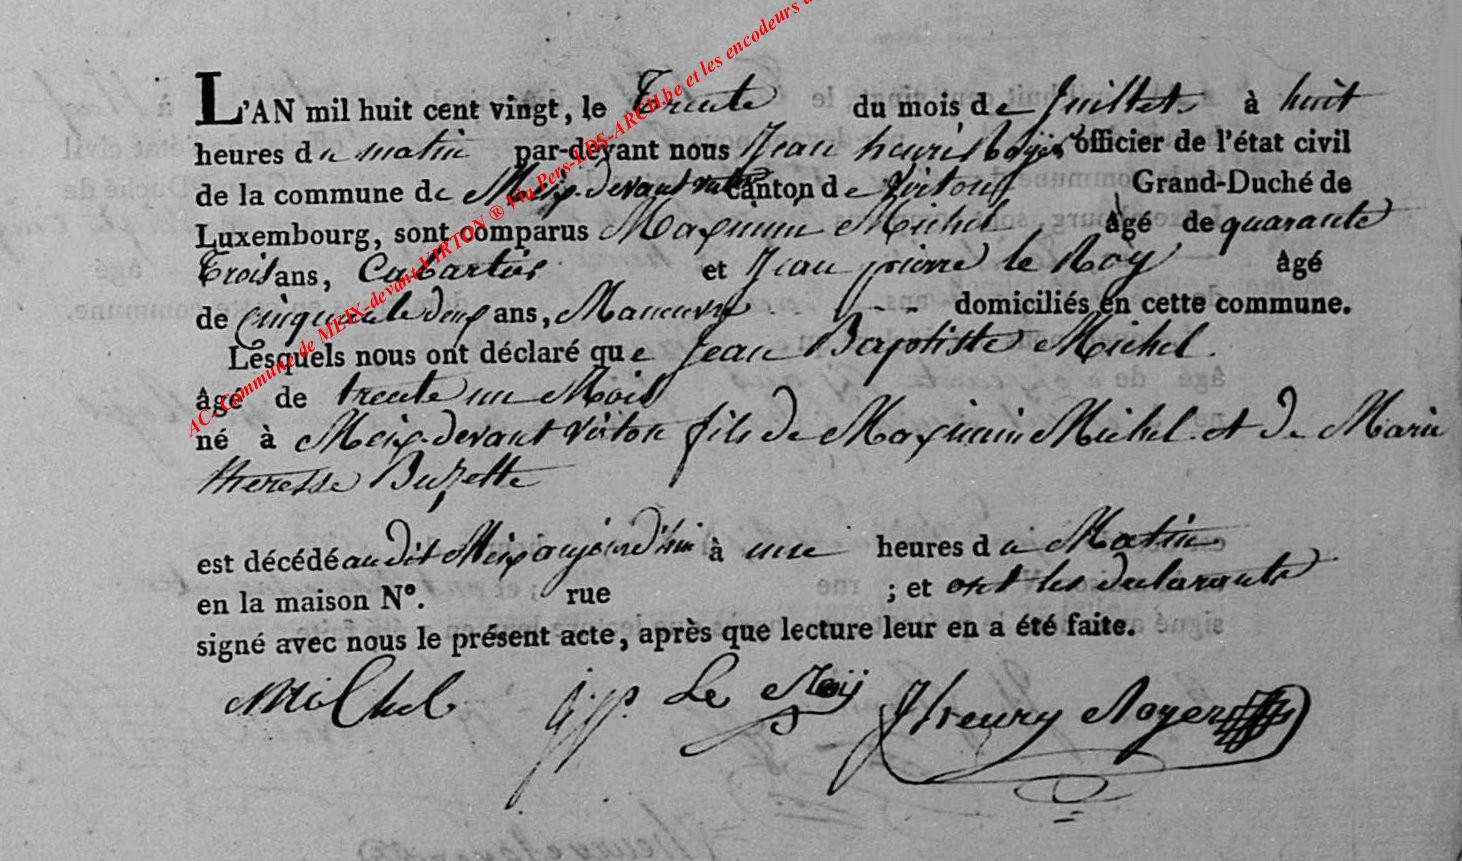 L'AN mil huit cent vingt, le Trente du mois de Juillet à huit
heures du matin par-devant nous Jean henri Royer officier de l'état civil
de la commune de Meix-devant virton Canton de Virton Grand-Duché de
Luxembourg, sont comparus Maximin Michel âgé de quarante
Trois ans, Cabartier et Jean pierre le Roy âgé
de cinquante deux ans, Maneuvre domiciliés en cette commune.
Lesquels nous ont déclaré que Jean Baptiste Michel.
âgé de trente un Mois
né à Meix-devant virton fils de Maximin Michel et de Marie
theresse Buzette
est décédé au dit Meix aujourd'hui à une heures du Matin
en la maison N°. rue ; et ont les declarants
signé avec nous le présent acte, après que lecture leur en a été faite.
Michel j p Le Roij JHenry Royer
AC. Commune de MEIX-devant-VIRTON ® Via Pers-LDS-ARCH.be et les encodeurs